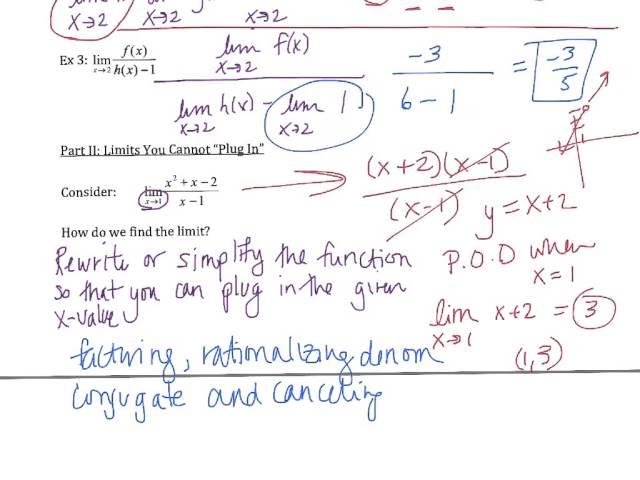 X→2
X→2
x→2
Ex 3: lim x→2 f(x)/h(x)−1
lim x→2 f(x)
lim x→2 h(x) − lim x→2 1
-3
6 - 1
= -3/5
Part II: Limits You Cannot “Plug In”
Consider: lim x→1 x² + x − 2 / x − 1
(x+2)(x-1)
(x-1)
y = x+2
How do we find the limit?
Rewrite or simplify the function
so that you can plug in the given
x-value
P.O.D when
x = 1
lim x→1 x+2 = 3
(1,3)
facturing, rationalizing denom
conjugate and canceling